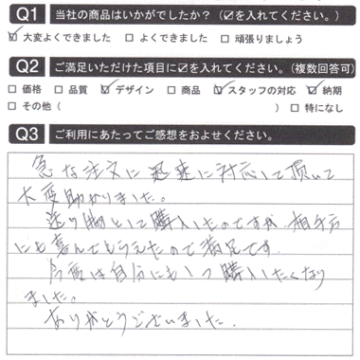 Q1 当社の商品はいかがでしたか？（☑を入れてください。）
☑ 大変よくできました □ よくできました □ 頑張りましょう
Q2 ご満足いただけた項目に☑を入れてください。（複数回答可）
□ 価格 □ 品質 ☑ デザイン □ 商品 ☑ スタッフの対応 ☑ 納期
□ その他（ ） □ 特になし
Q3 ご利用にあたってご感想をおよせください。
急な注文に迅速に対応して頂いて
大変助かりました。
送り物として購入したのですが相手方
にも喜んでもらえたので満足です。
今度は自分にも1つ購入したくなり
ました。
ありがとうございました.